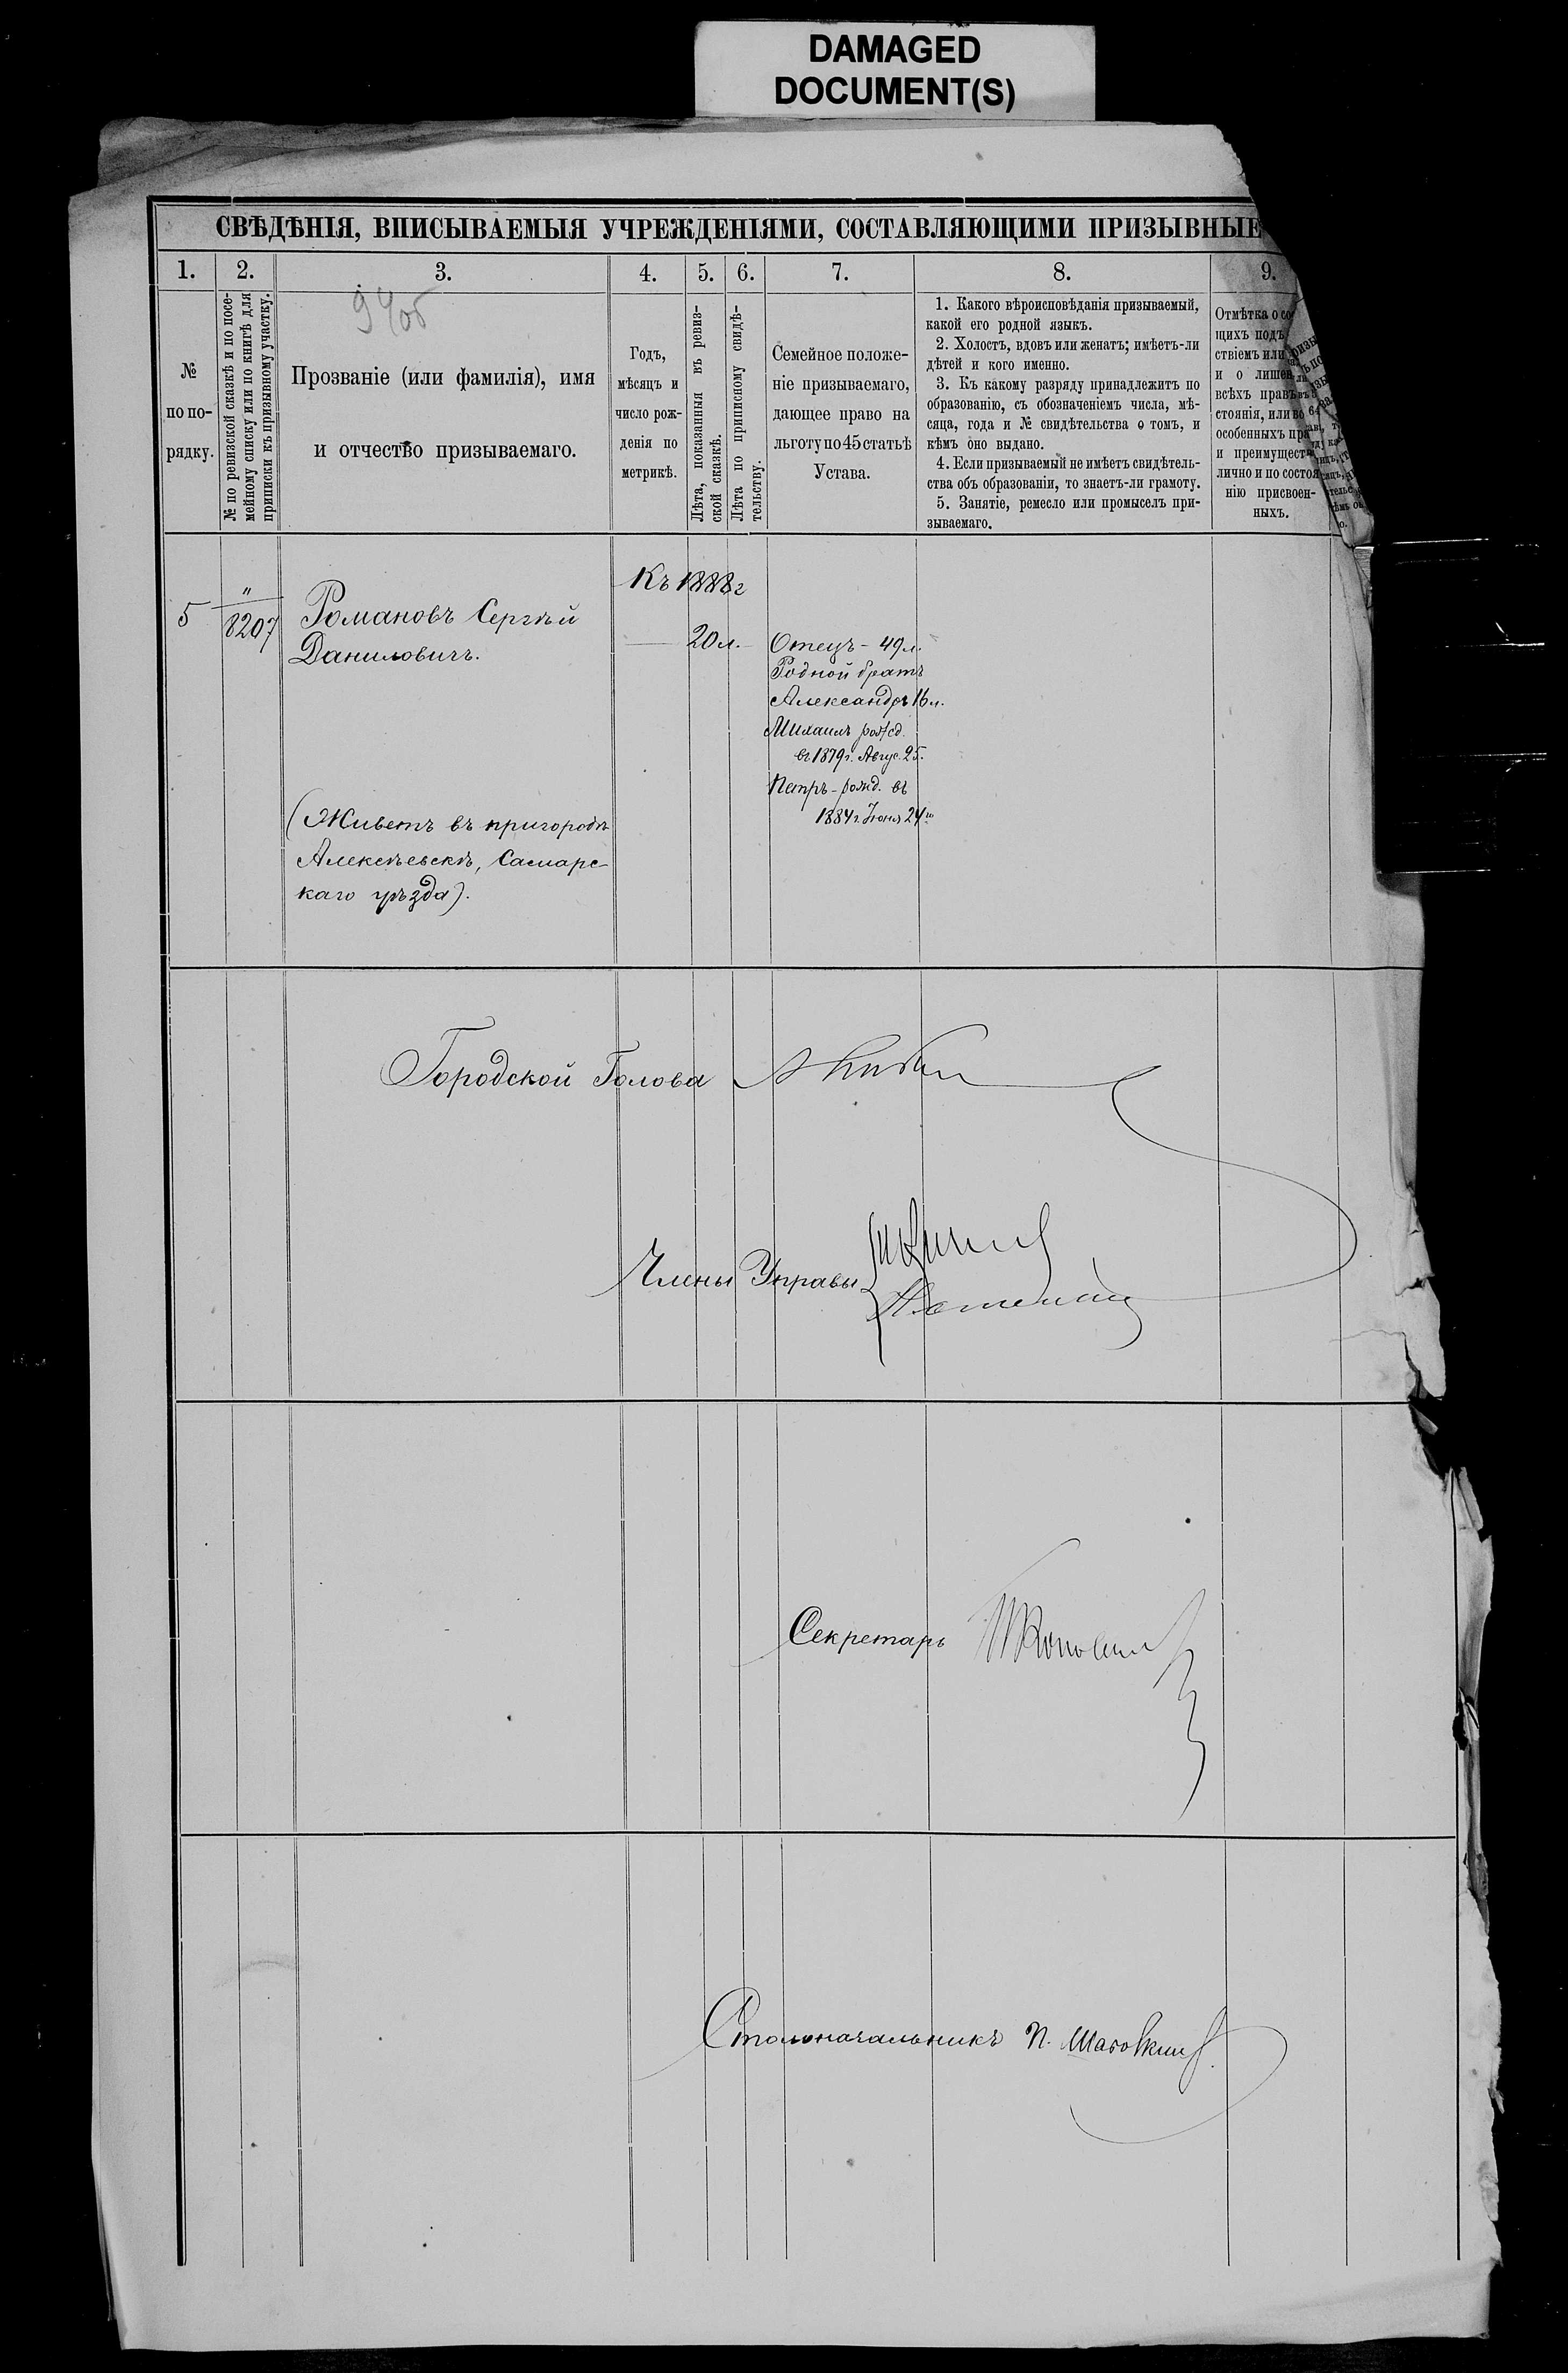 DAMAGED
DOCUMENT(S)
СВѢДѢНІЯ, ВПИСЫВАЕМЫЯ УЧРЕЖДЕНІЯМИ, СОСТАВЛЯЮЩИМИ ПРИЗЫВНЫЕ
1.
2.
3.
4.
5.
6.
7.
8.
9.
№
по по-
рядку.
№ по ревизской сказкѣ и по посе-
мейному списку или по книгѣ для
приписки къ призывному участку.
Прозваніе (или фамилія), имя
и отчество призываемаго.
Годъ,
мѣсяцъ и
число рож-
денія по
метрикѣ.
Лѣта, показанныя въ ревиз-
ской сказкѣ.
Лѣта по приписному свидѣ-
тельству.
Семейное положе-
ніе призываемаго,
дающее право на
льготу по 45 статьѣ
Устава.
1. Какого вѣроисповѣданія призываемый,
какой его родной языкъ.
2. Холостъ, вдовъ или женатъ; имѣетъ-ли
дѣтей и кого именно.
3. Къ какому разряду принадлежитъ по
образованію, съ обозначеніемъ числа, мѣ-
сяца, года и № свидѣтельства о томъ, и
кѣмъ оно выдано.
4. Если призываемый не имѣетъ свидѣтель-
ства объ образованіи, то знаетъ-ли грамоту.
5. Занятіе, ремесло или промыселъ при-
зываемаго.
Отмѣтка о со
щихъ подъ
ствіемъ или
и о лишен
всѣхъ правъ
стоянія, или во
особенныхъ пра
и преимущест
лично и по состоя
нію присвоен-
ныхъ.
5
"
8207
Романовъ Сергѣй
Даниловичъ.
(Живетъ въ пригородѣ
Алексѣевскѣ, Самарс-
каго уѣзда).
Къ 1888 г
20 л.
Отецъ - 49 л.
Родной братъ
Александръ 16 л.
Михаилъ рожд.
въ 1879 г. Авгус. 25.
Петръ - рожд. въ
1884 г. Іюня 24го
Городской Голова
Члены Управы
Секретарь
Столоначальникъ П.